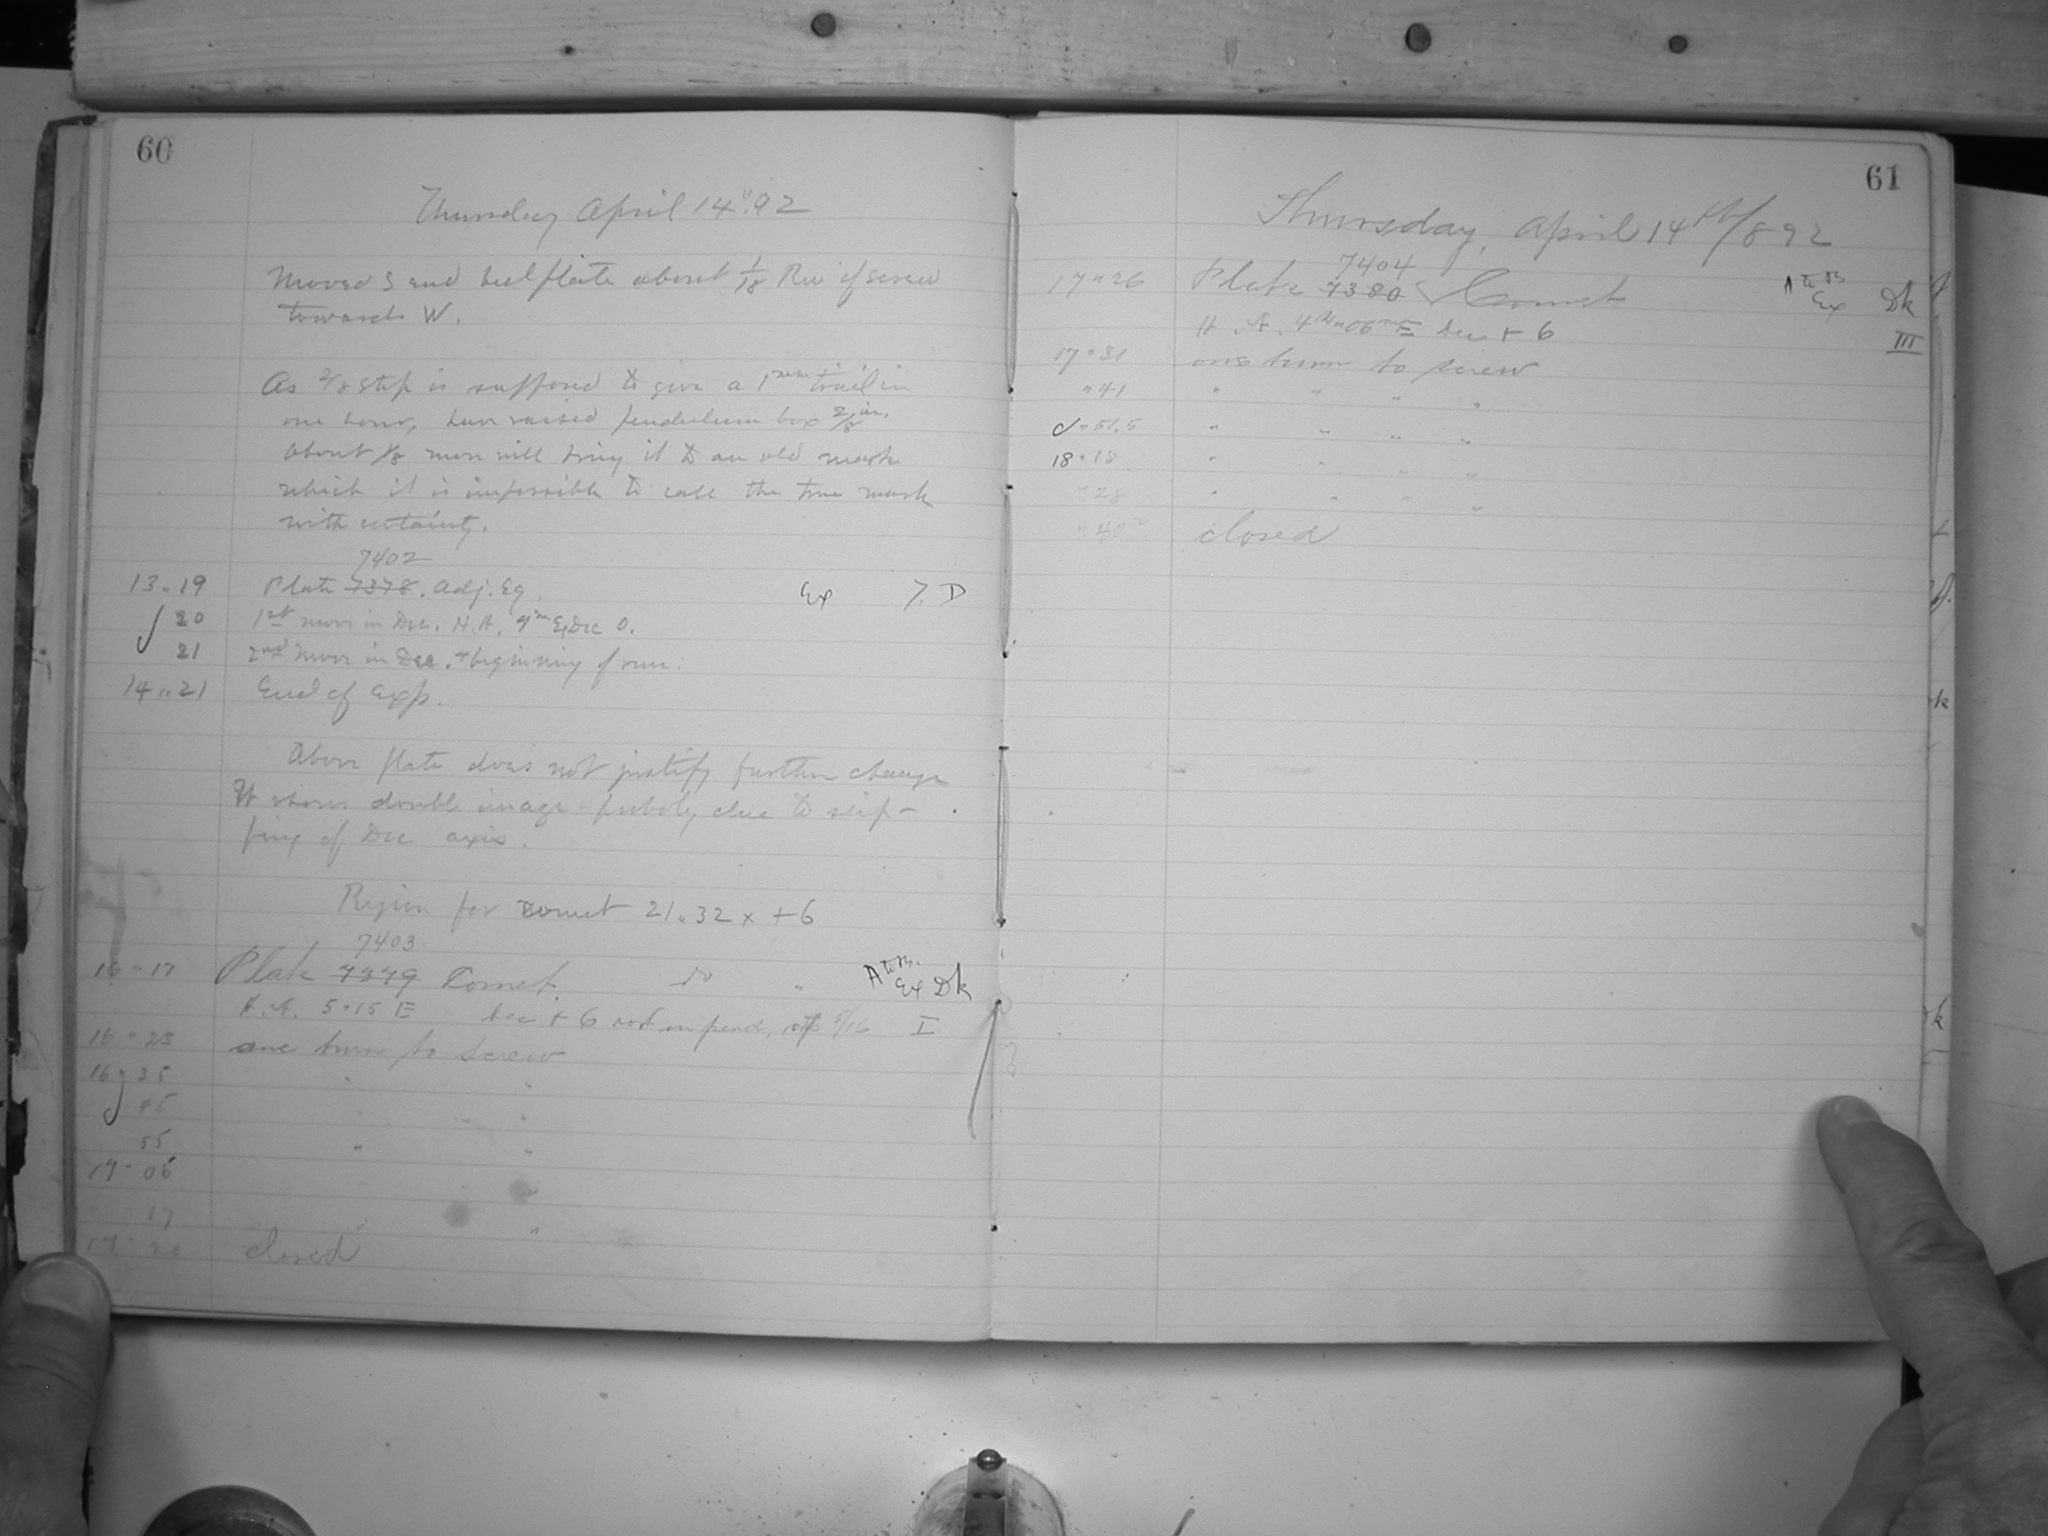 60
Thursday April 14 " 92
Moved S end bed plate about 1/18 Rev of screw
towards W.
As 2/8 step is supposed to give a 1 mm trail in
one hour, have raised pendulum box 2/8 in.
About 1/8 more will bring it to an old mark
which it is impossible to call the true mark
with certainty.
7402
13 " 19 Plate 7378. Adj. Eq. Ex
20 1st move in Dec. H.A. 9m E, Dec 0.
21 2nd move in Dec. + beginning of run.
14 " 21 End of Exp.
Above plate does not justify further change
It shows double image - probably due to slip-
ping of Dec axis.
Region for comet 21 " 32 x +6
7403
16 " 17 Plate 7379 Comet. do " A to B. Ex Dk
H.A. 5 " 15 E Dec + 6 rod on pend, stop 5/16 I
16 " 25 one turn to screw
16 35 " "
45 " "
55 " "
17 " 05 "
17 " "
17 " closed
61
Thursday, April 14th/892
7404
17 " 26 Plate 7380 Comet A to B Ex Dk
H.A. 4h " 06m E Dec + 6 III
17 " 31 one turn to screw
" 41 " " " "
" 51.5 " " " "
18 " 18 " " " "
" 28 " " " "
" 40 closed